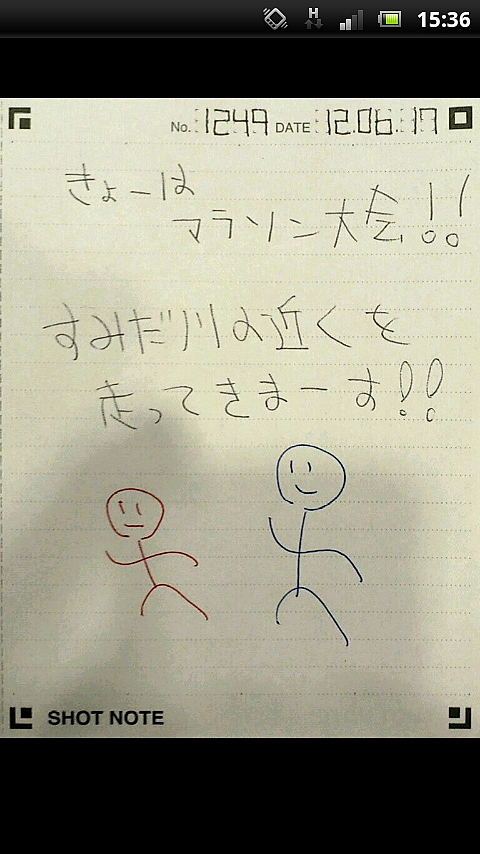 H 15:36
No. 1249 DATE 12.06.17
きょーは
マラソン大会!!
すみだ川の近くを
走ってきまーす!!
SHOT NOTE